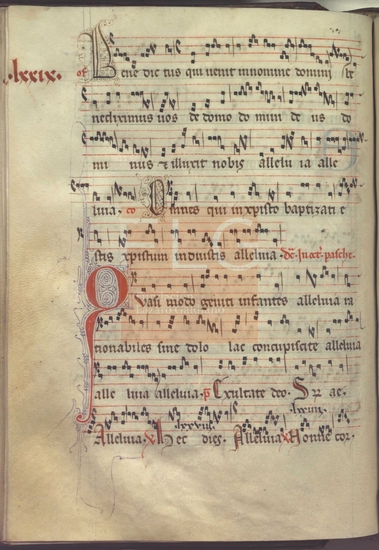 .lxxix. of Bene dic tus qui uenit innomine domini be
nediximus uos de domo do mini de us do
mi nus & illuxit nobis allelu ia alle
luia. co Omnes qui inxpisto baptizati e
stis xpistum induistis alleluia.
Q Uasi modo geniti infantes alleluia ra
tionabiles sine dolo lac concupiscite alleluia
alle luia alleluia. p Exultate deo. ae.
lxxviii.
Alleluia. V Hec dies. Alleluia. V Nonne cor.